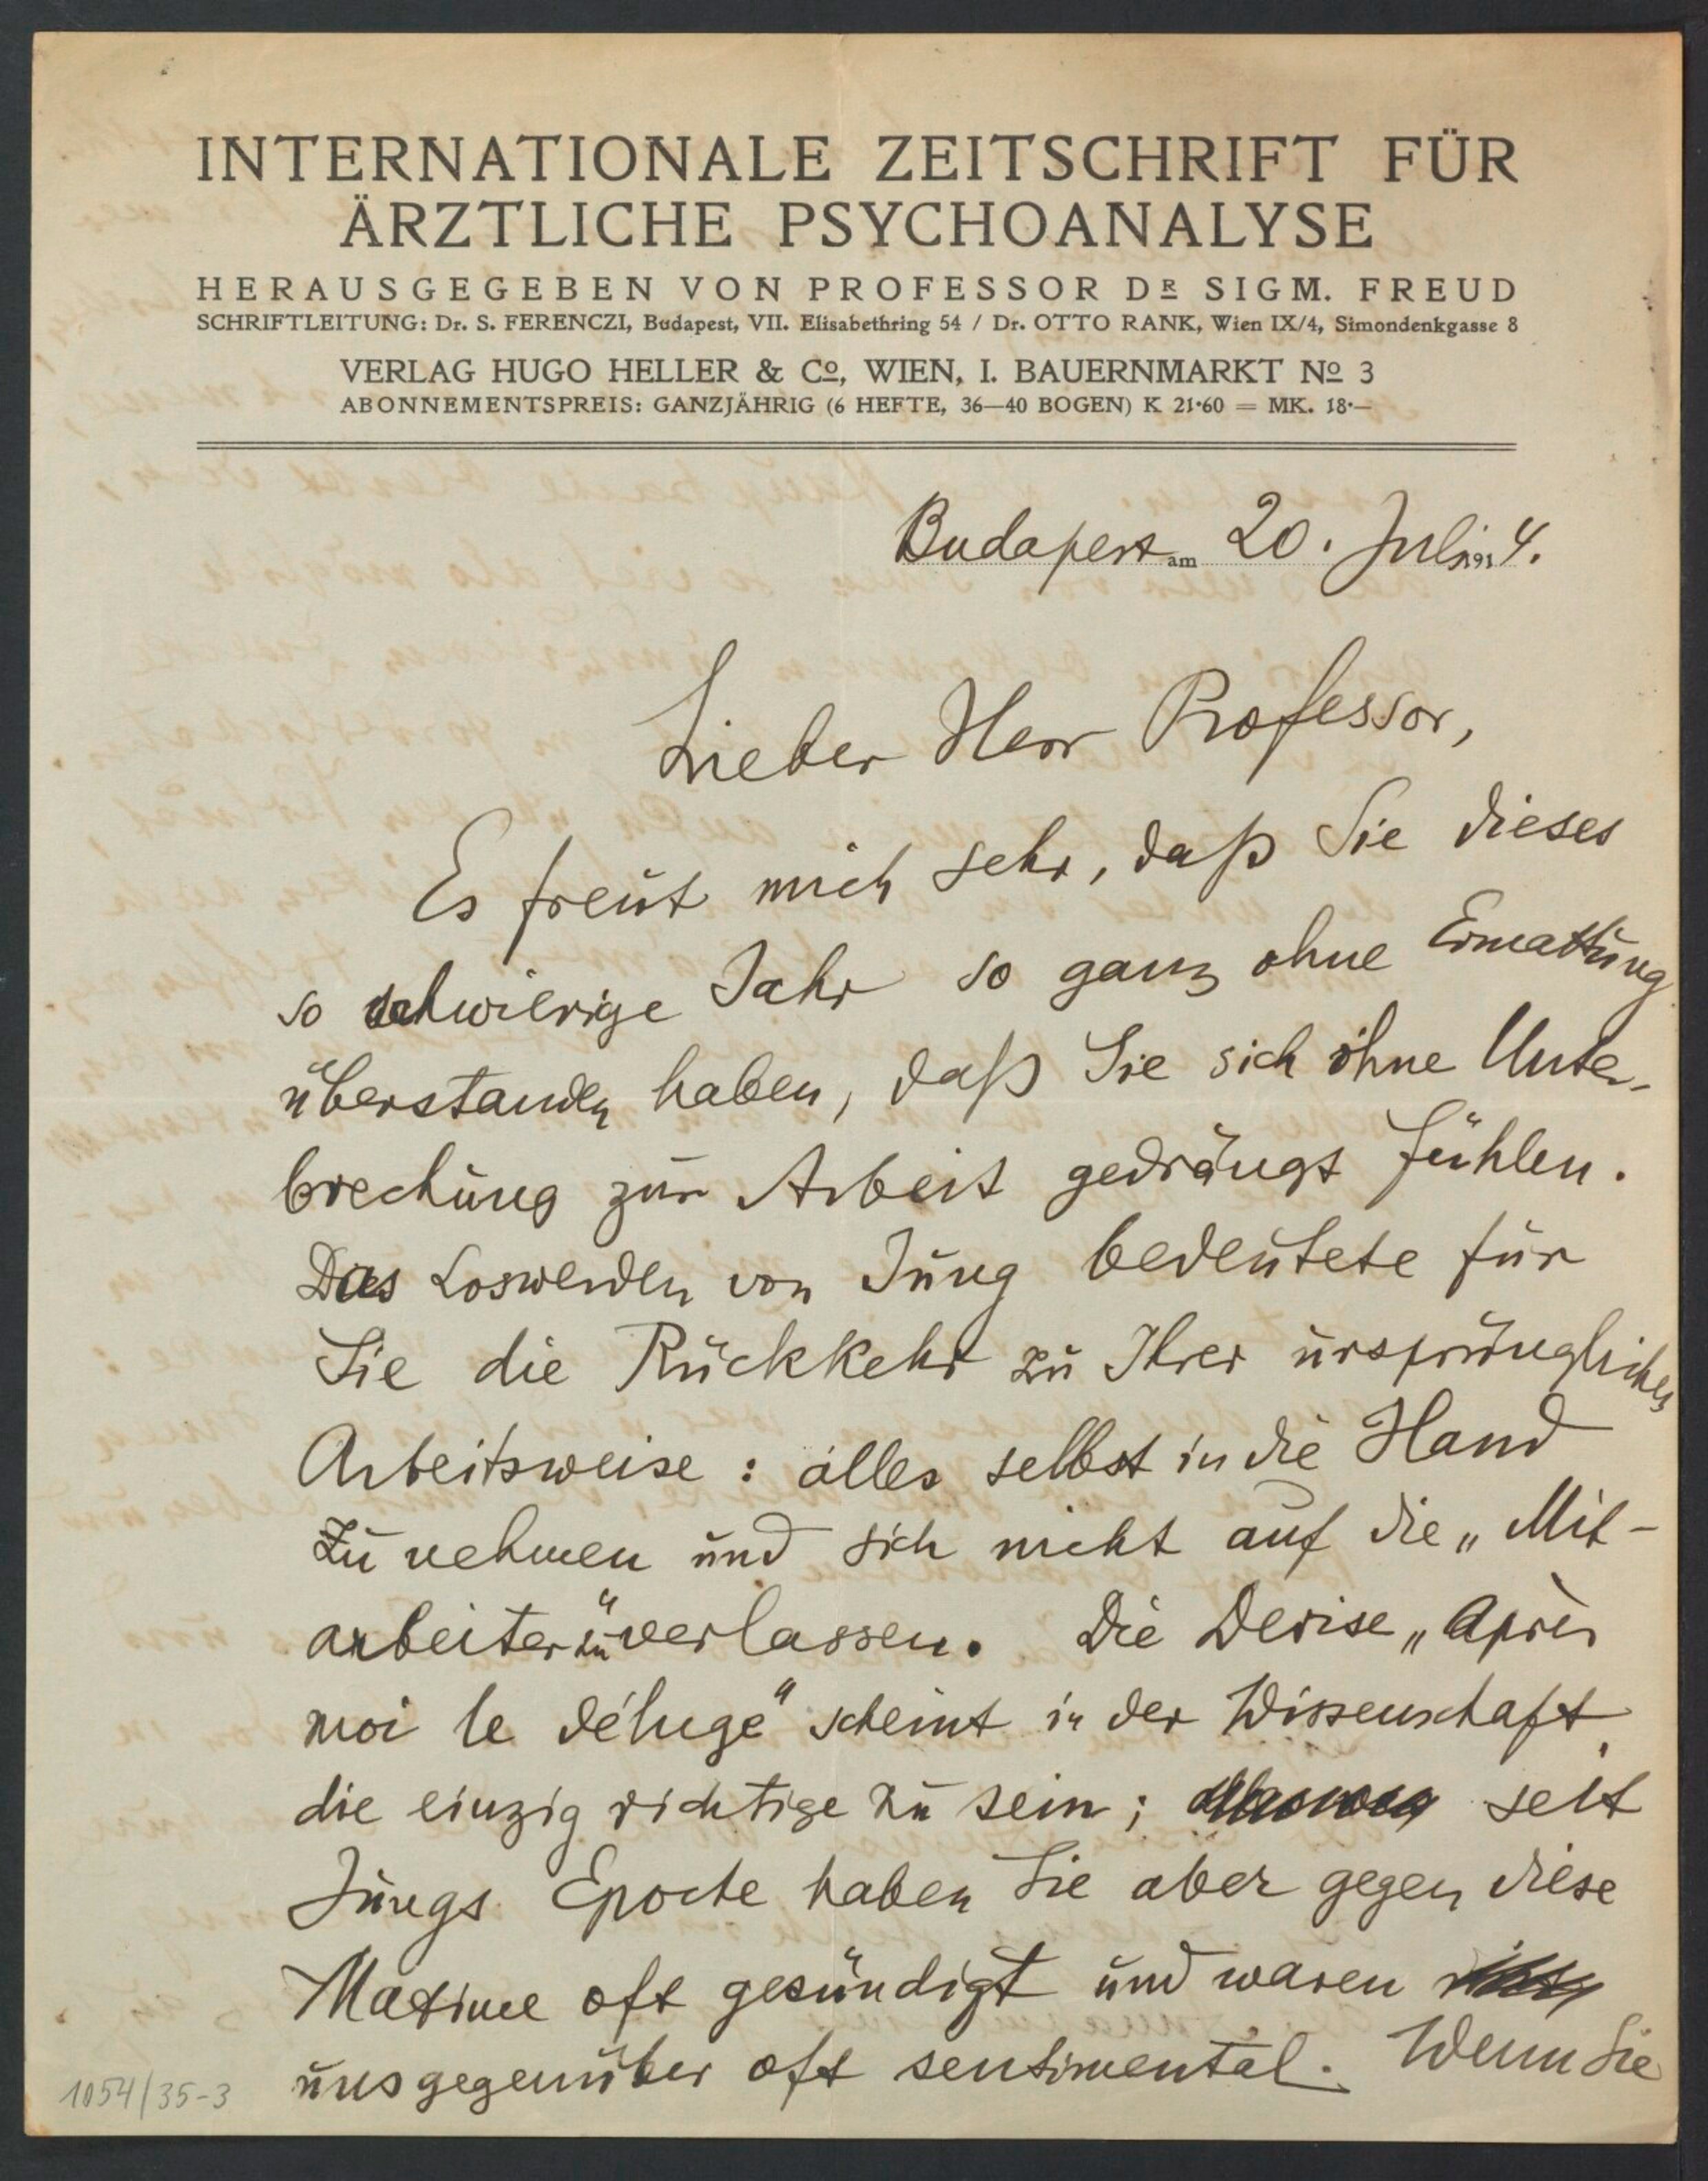 INTERNATIONALE ZEITSCHRIFT FÜR
ÄRZTLICHE PSYCHOANALYSE
HERAUSGEGEBEN VON PROFESSOR DR SIGM. FREUD
SCHRIFTLEITUNG: Dr. S. FERENCZI, Budapest, VII. Elisabethring 54 / Dr. OTTO RANK, Wien IX/4, Simondenkgasse 8
VERLAG HUGO HELLER & Co, WIEN, I. BAUERNMARKT No 3
ABONNEMENTSPREIS: GANZJÄHRIG (6 HEFTE, 36—40 BOGEN) K 21·60 = MK. 18·—
Budapest am 20. Juli 1914.
Lieber Herr Professor,
Es freut mich sehr, daß Sie dieses
so schwierige Jahr so ganz ohne Ermattung
überstanden haben, daß Sie sich ohne Unter-
brechung zur Arbeit gedrängt fühlen.
Das Loswerden von Jung bedeutete für
Sie die Rückkehr zu Ihrer ursprünglichen
Arbeitsweise: alles selbst in die Hand
zu nehmen und sich nicht auf die „Mit-
arbeiter“ zu verlassen. Die Devise „Après
moi le déluge“ scheint in der Wissenschaft
die einzig richtige zu sein; seit
Jungs Epoche haben Sie aber gegen diese
Maxime oft gesündigt und waren
uns gegenüber oft sentimental. Wenn Sie
1054/35-3